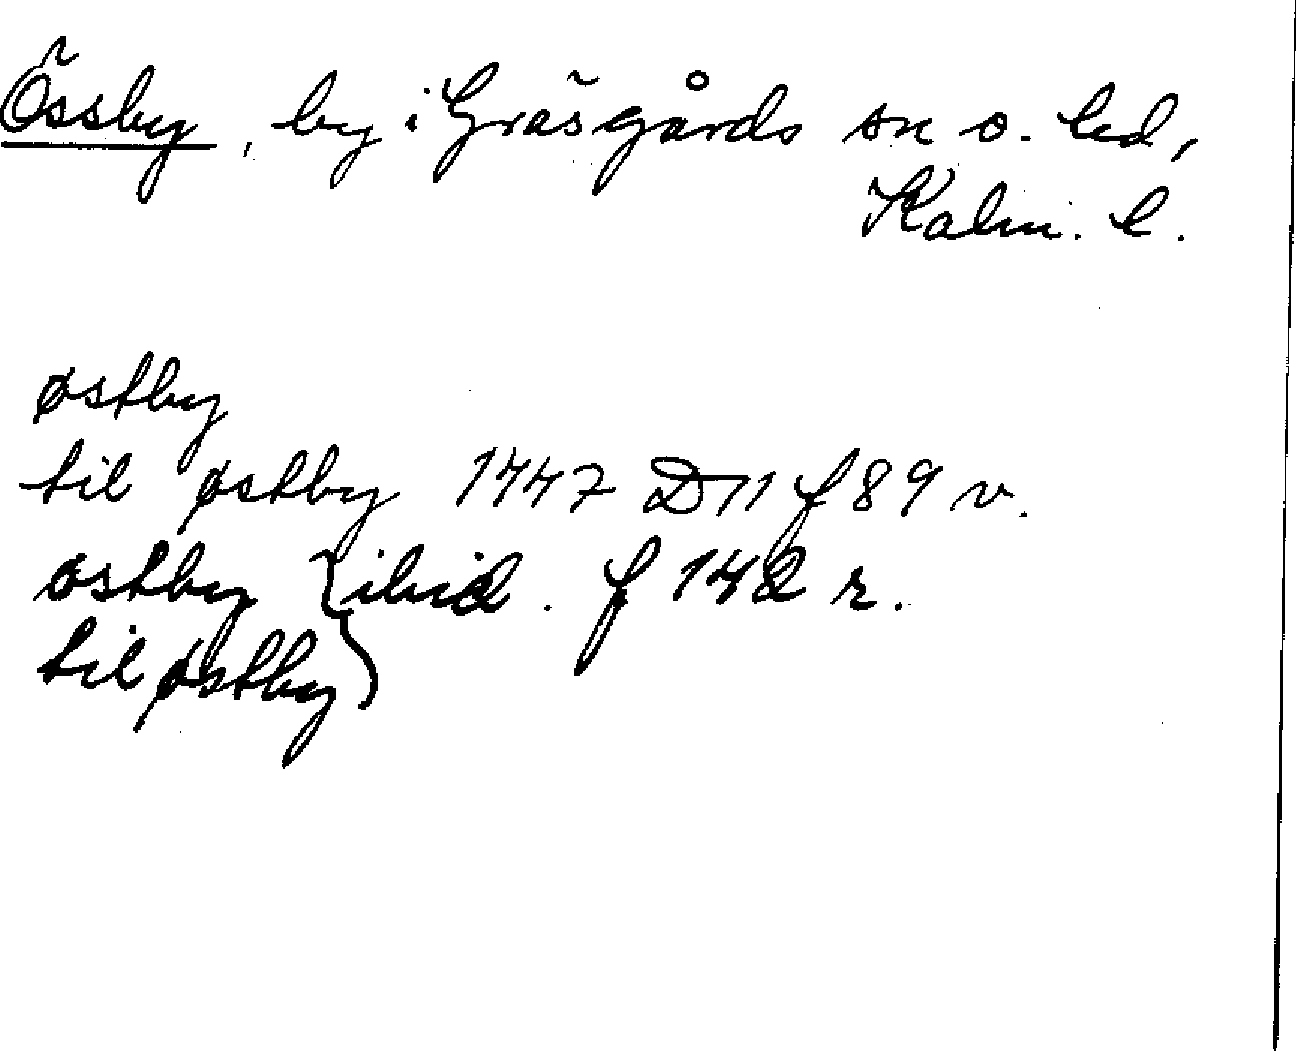 Össby, by i Gräsgårds sn o. hd,
Kalm. l.
østby
til østby 1447 D 11 f 89 v.
østby } ibid. f 142 r.
til østby